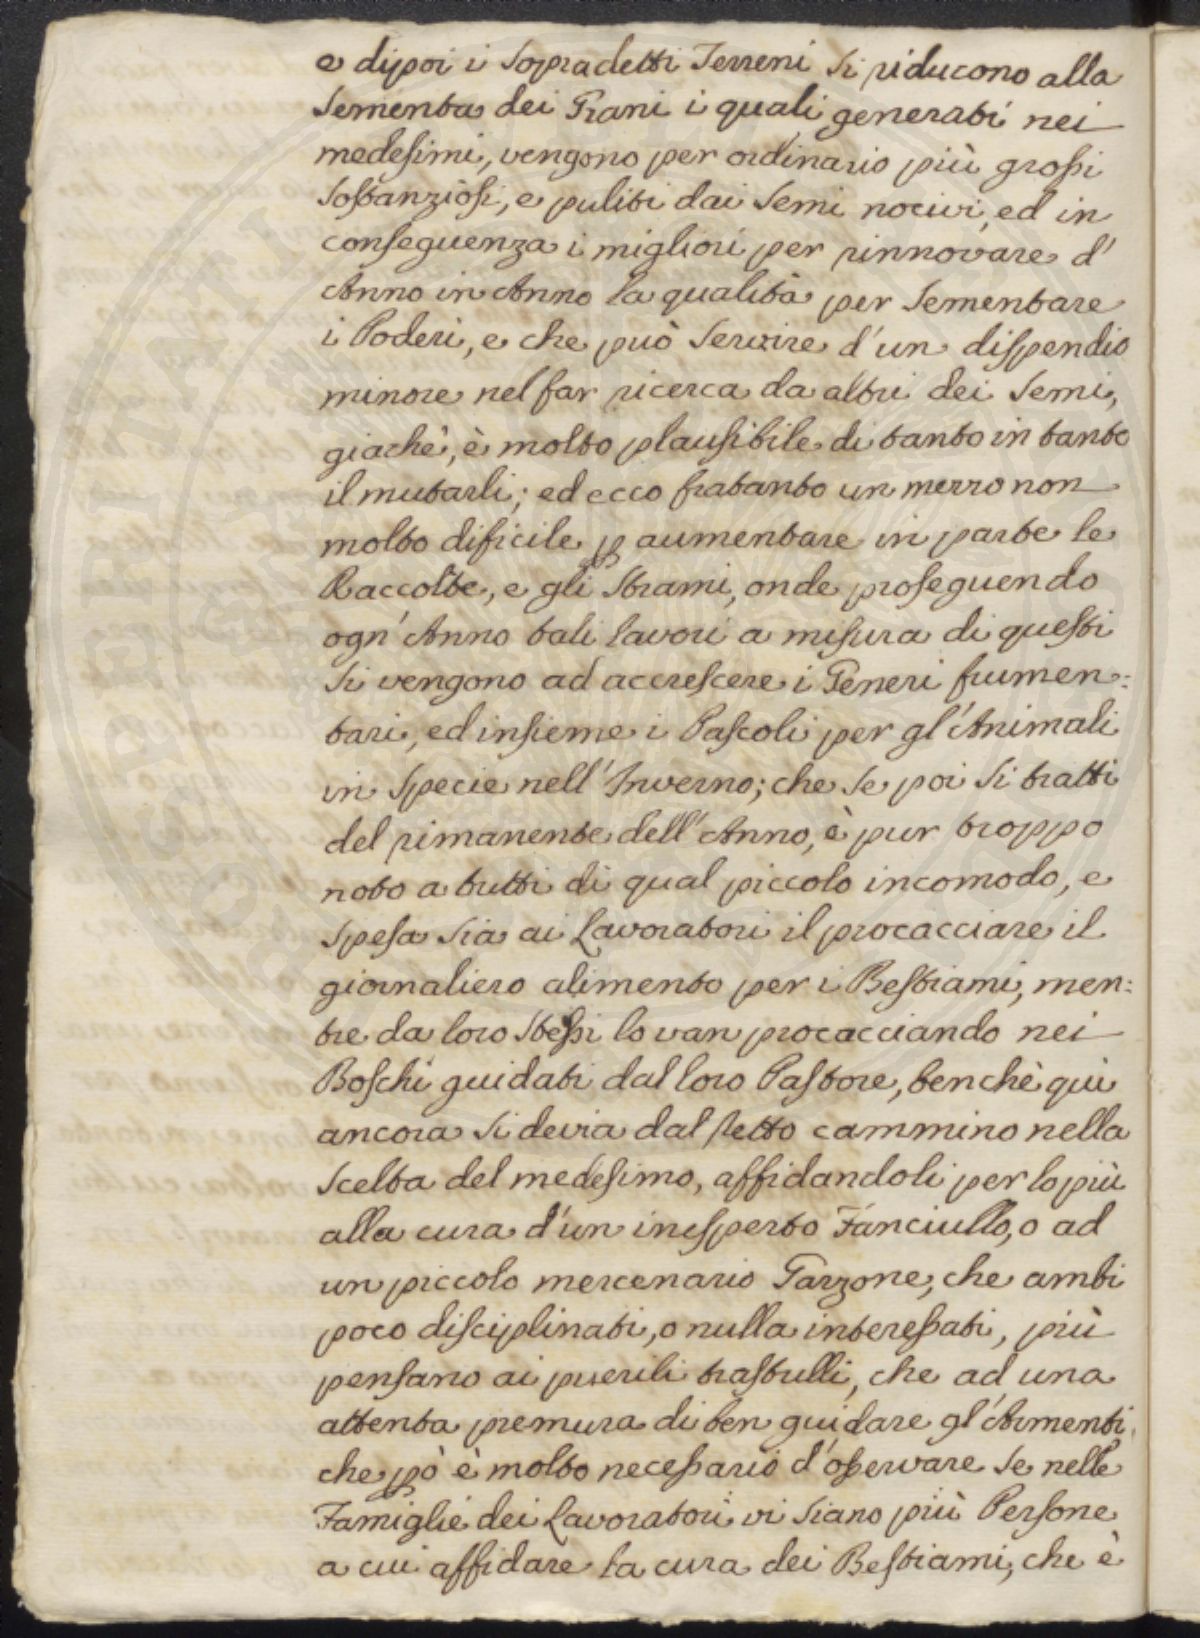 e dipoi i Sopradetti Terreni Si riducono alla
Sementa dei Grani i quali generati nei
medesimi, vengono per ordinario più grossi
Sostanziosi, e puliti dai Semi nocivi, ed in
conseguenza i migliori per rinnovare d'
Anno in Anno la qualità per Sementare
i Poderi, e che può Servire d'un dispendio
minore nel far ricerca da altri dei Semi,
giachè, è molto plausibile di tanto in tanto
il mutarli; ed ecco fratanto un mezzo non
molto dificile p aumentare in parte le
Raccolte, e gli Strami, onde proseguendo
ogn'Anno tali lavori a misura di questi
Si vengono ad accrescere i Generi frumen:
tari, ed insieme i Pascoli per gl'Animali
in Specie nell'Inverno; che Se poi Si tratti
del rimanente dell'Anno, è pur troppo
noto a tutti di qual piccolo incomodo, e
Spesa Sia ai Lavoratori il procacciare il
giornaliero alimento per i Bestiami, men:
tre da loro Stessi lo van procacciando nei
Boschi guidati dal loro Pastore, benchè quì
ancora Si devia dal retto cammino nella
Scelta del medesimo, affidandoli per lo più
alla cura d'un inesperto Fanciullo, o ad
un piccolo mercenario Garzone, che ambi
poco disciplinati, o nulla interessati, più
pensano ai puerili trastulli, che ad una
attenta premura di ben guidare gl'Armenti,
che pò è molto necessario d'osservare Se nelle
Famiglie dei Lavoratori vi Siano più Persone
a cui affidare la cura dei Bestiami, che è
PROSPERITATI